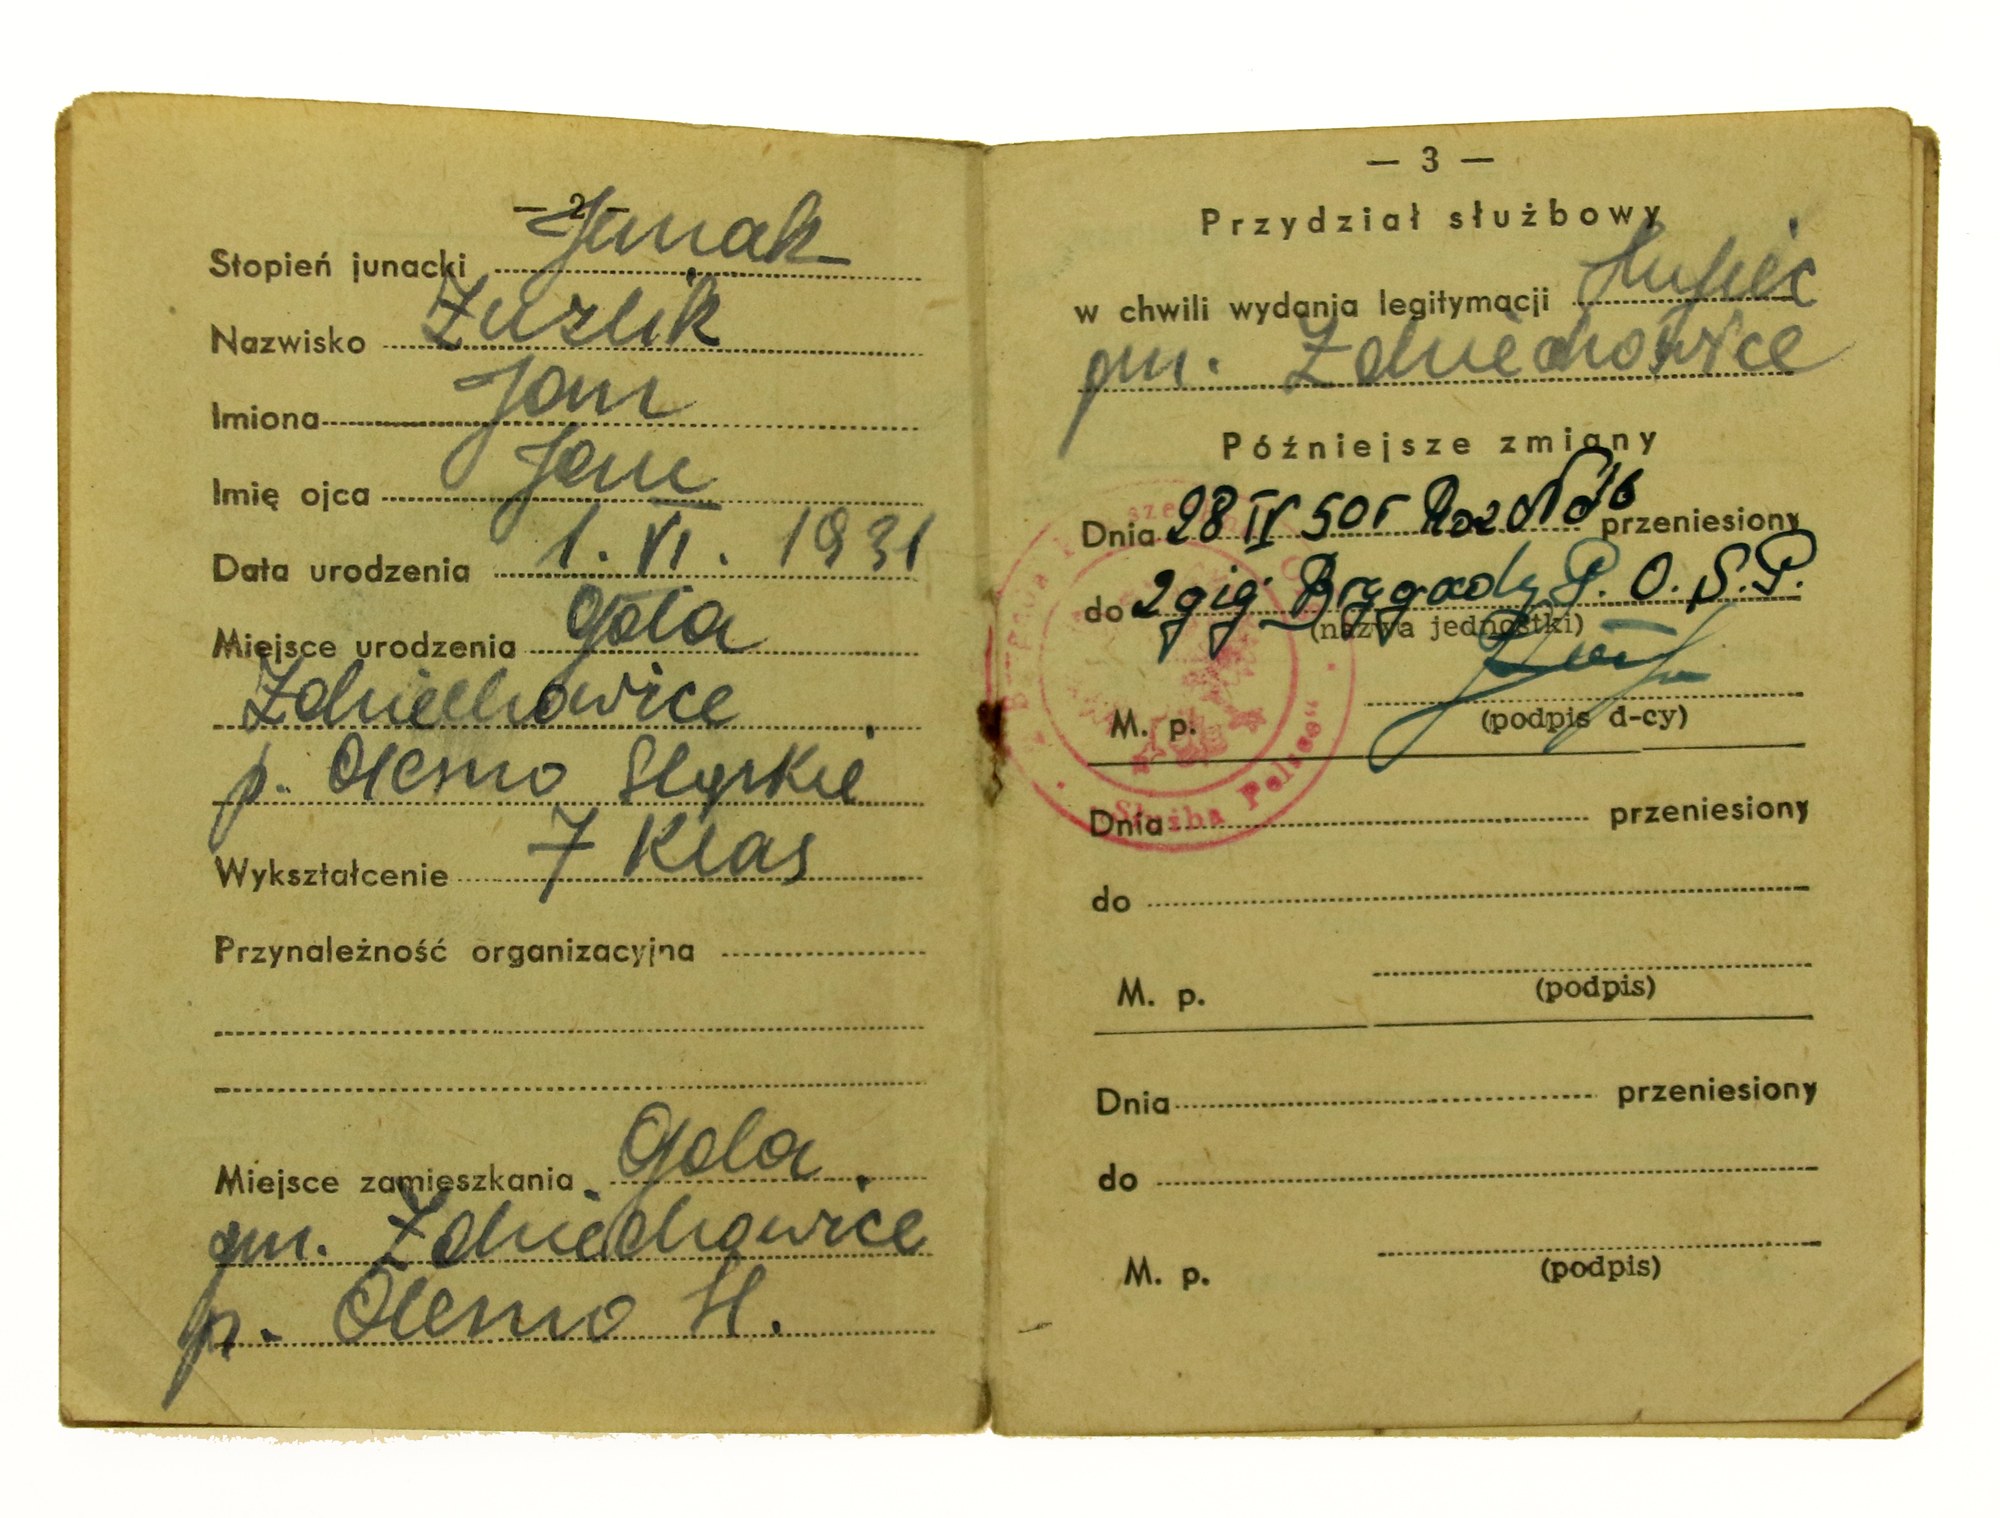 — 2 —
Stopień junacki Junak
Nazwisko Żuzlik
Imiona Jan
Imię ojca Jan
Data urodzenia 1. VI. 1931
Miejsce urodzenia Gola
Zdziechowice
p. Olesno Śląskie
Wykształcenie 7 klas
Przynależność organizacyjna
Miejsce zamieszkania Gola
gm. Zdziechowice
p. Olesno Śl.
— 3 —
Przydział służbowy
w chwili wydania legitymacji Hufiec
gm. Zdziechowice
Późniejsze zmiany
Dnia 28 IV 50r przeniesiony
do 2giej Brygady P. O. S. P.
(nazwa jednostki)
M. p. (podpis d-cy)
Służba Polsce"
Dnia przeniesiony
do
M. p. (podpis)
Dnia przeniesiony
do
M. p. (podpis)